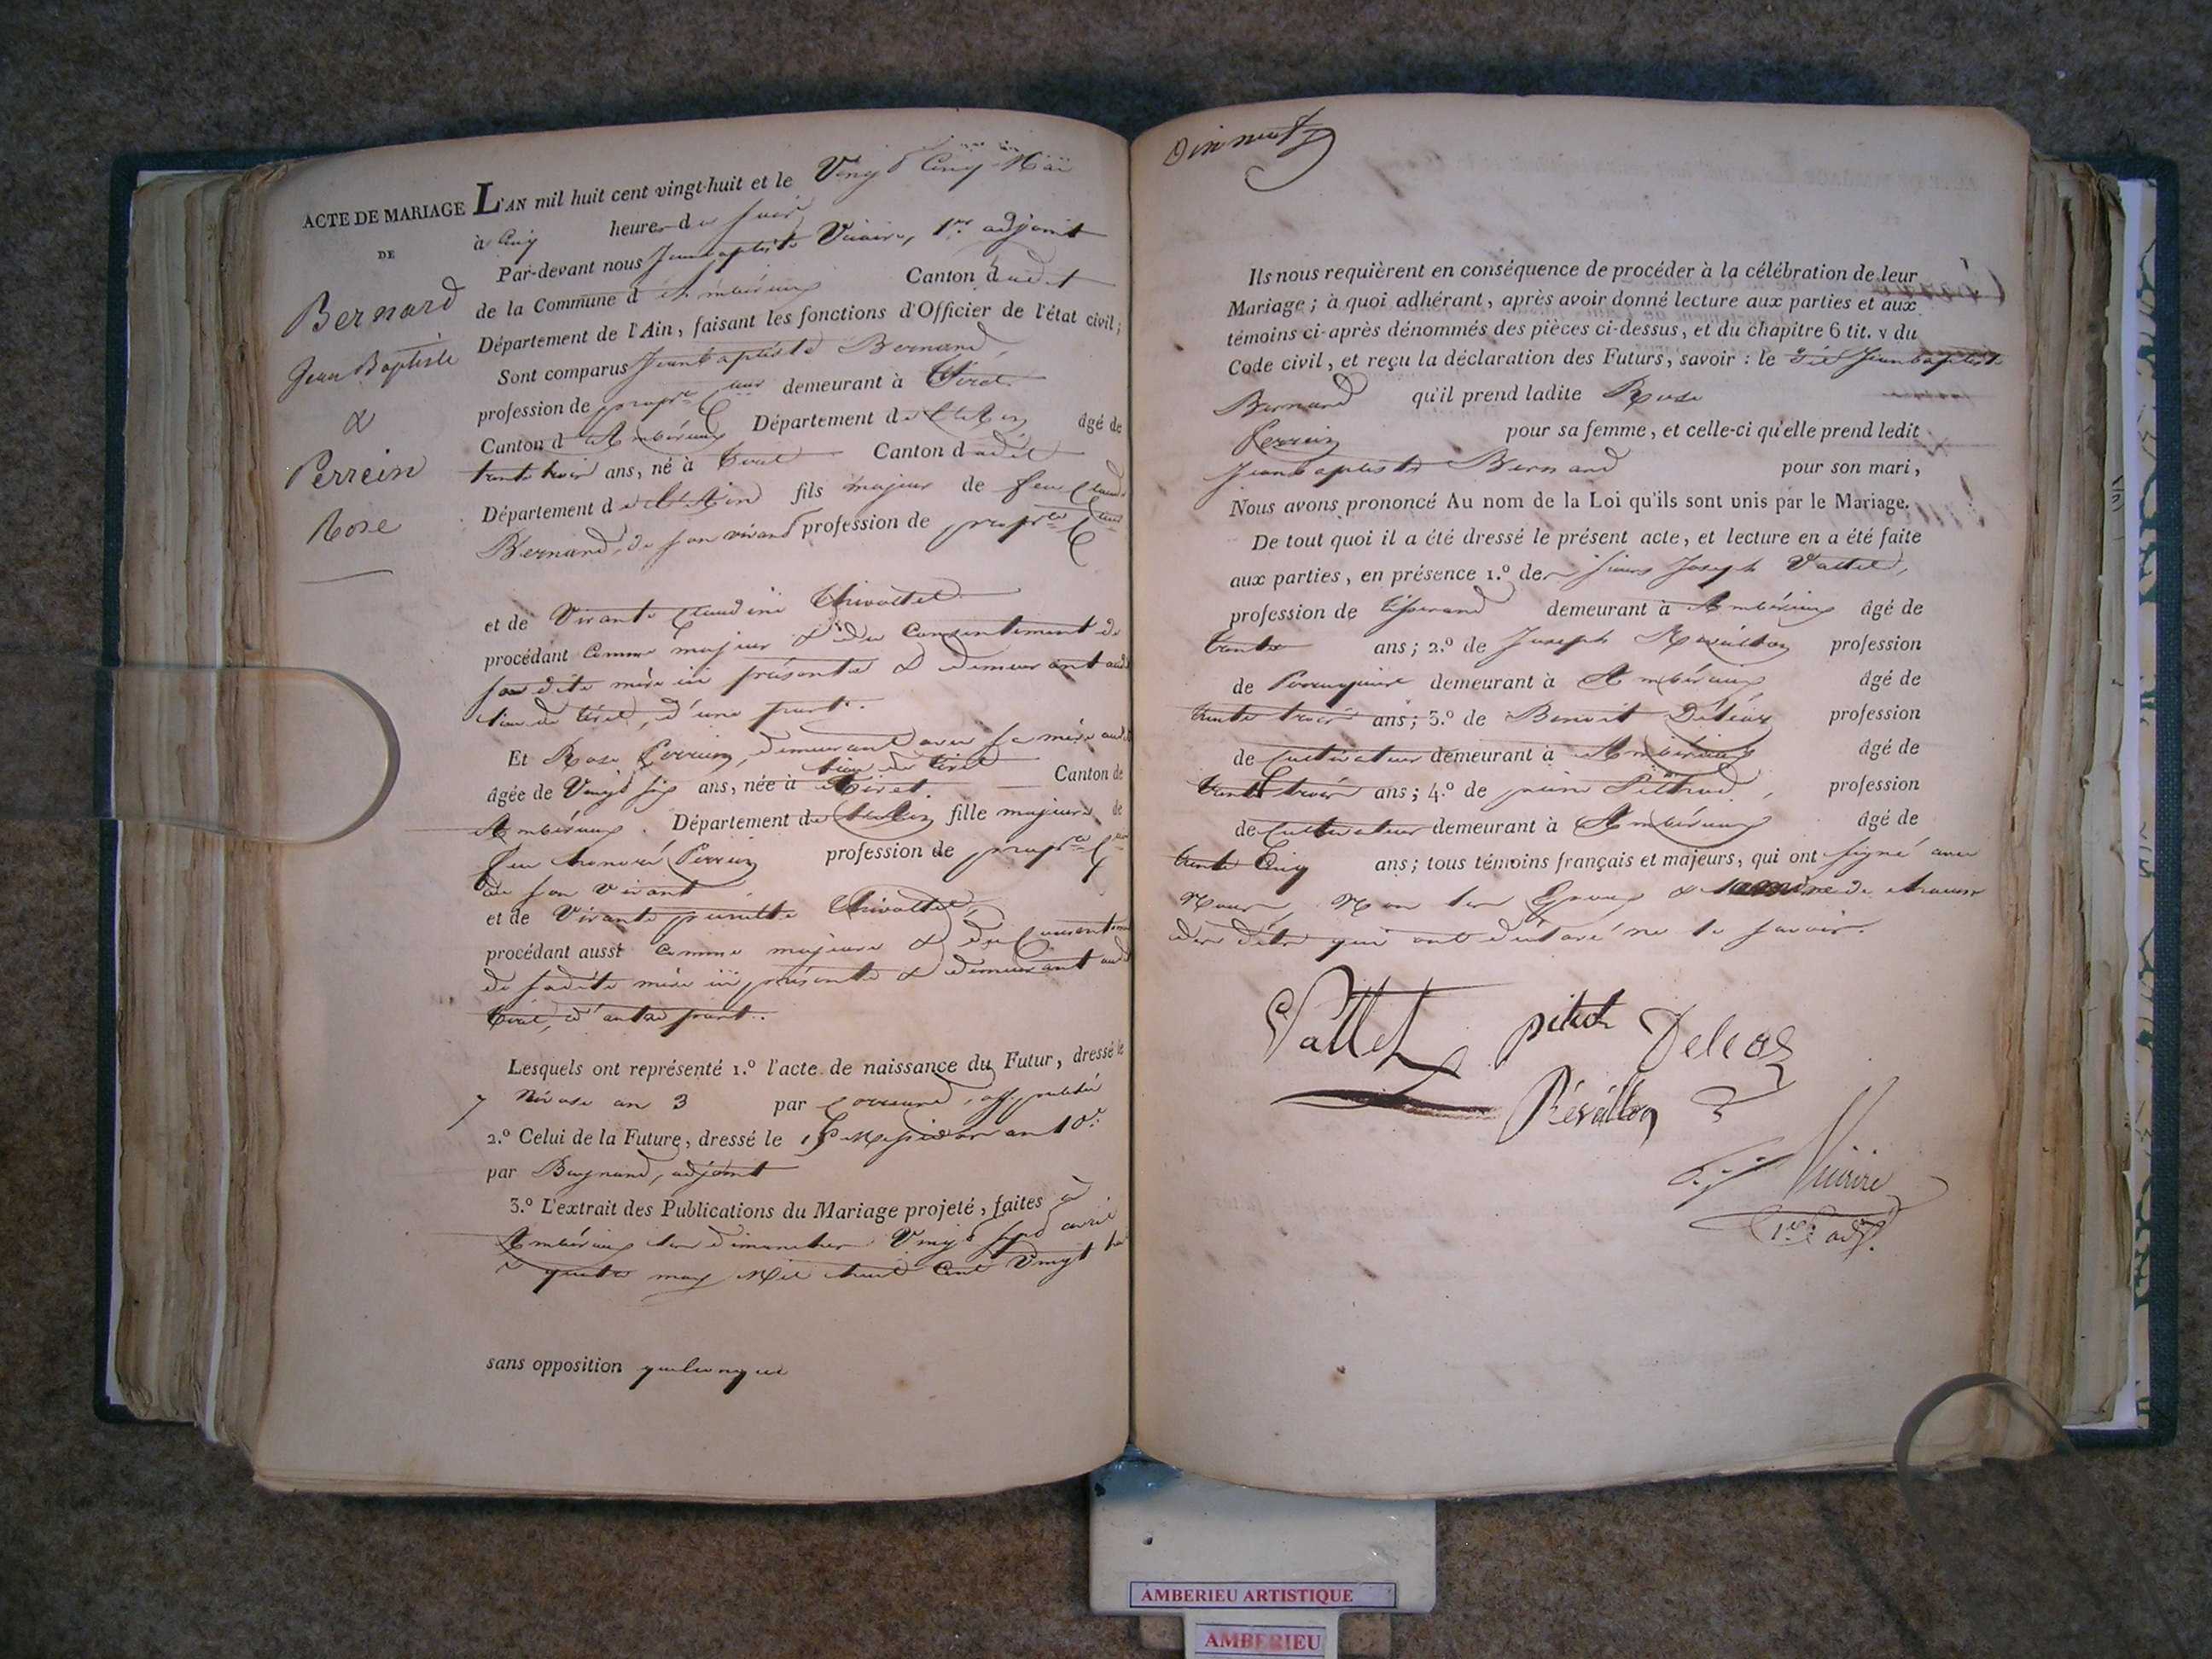 ACTE DE MARIAGE
DE
Bernard
Jean Baptiste
&
Perrein
Rose
L'AN mil huit cent vingt-huit et le Vingt Cinq Mai
à Cinq heures du soir
Par-devant nous Jean baptiste Vicaire, 1er adjoint
de la Commune d'Ambérieux Canton dudit
Département de l'Ain, faisant les fonctions d'Officier de l'état civil;
Sont comparus Jean baptiste Bernard,
profession de propre demeurant à Tiret
Canton d'Ambérieux Département de l'Ain âgé de
trente trois ans, né à Tiret Canton dudit
Département de l'Ain fils majeur de feu Claude
Bernard, de son vivant profession de propre
et de Vivante Claudine Thivollet
procédant comme majeur & du Consentement de
sa dite mère ici présente & demeurant audit
lieu de tiret, d'une part.
Et Rose Perrein, demeurant avec sa mère audit
lieu de tiret
âgée de Vingt six ans, née à Tiret. Canton de
Ambérieux. Département de l'Ain fille majeure de
feu honoré Perrein profession de propre
de son vivant
et de Vivante Thivollet,
procédant aussi comme majeure & du Consentement
de sadite mère ici présente & demeurant audit
tiret, d'autre part.
Lesquels ont représenté 1.º l'acte de naissance du Futur, dressé le
7 Nivose an 3 par off. public
2.º Celui de la Future, dressé le Messidor an 10.
par adjoint
3.º L'extrait des Publications du Mariage projeté, faites à
Ambérieux les dimanches Vingt sept avril
& quatre may Mil huit Cent Vingt huit
sans opposition quelconque
Dix neuf
Ils nous requièrent en conséquence de procéder à la célébration de leur
Mariage; à quoi adhérant, après avoir donné lecture aux parties et aux
témoins ci-après dénommés des pièces ci-dessus, et du chapitre 6 tit. v du
Code civil, et reçu la déclaration des Futurs, savoir : le dit Jean baptiste
Bernard qu'il prend ladite Rose
Perrein pour sa femme, et celle-ci qu'elle prend ledit
Jean baptiste Bernard pour son mari,
Nous avons prononcé Au nom de la Loi qu'ils sont unis par le Mariage.
De tout quoi il a été dressé le présent acte, et lecture en a été faite
aux parties, en présence 1.º des sieurs Joseph Vallet,
profession de tisserand demeurant à Ambérieux âgé de
trente ans; 2.º de Joseph Révillon profession
de Perruquier demeurant à Ambérieux âgé de
trente trois ans; 3.º de Benoit Déléas profession
de Cultivateur demeurant à Ambérieux âgé de
trente trois ans; 4.º de profession
de Cultivateur demeurant à Ambérieux âgé de
trente Cinq ans; tous témoins français et majeurs, qui ont signé avec
Nous, Non les Epoux & la mère de chacun
des dits qui ont déclaré ne le savoir.
Vallet pitiot Deleas
Révillon
Vicaire
1er adj.
AMBERIEU ARTISTIQUE
AMBERIEU